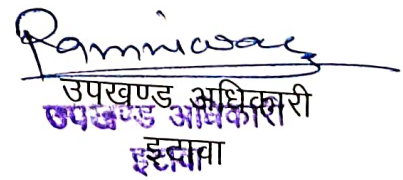 Ramniwas
उपखण्ड अधिकारी
उपखण्ड अधिकारी
इटावा
इटावा